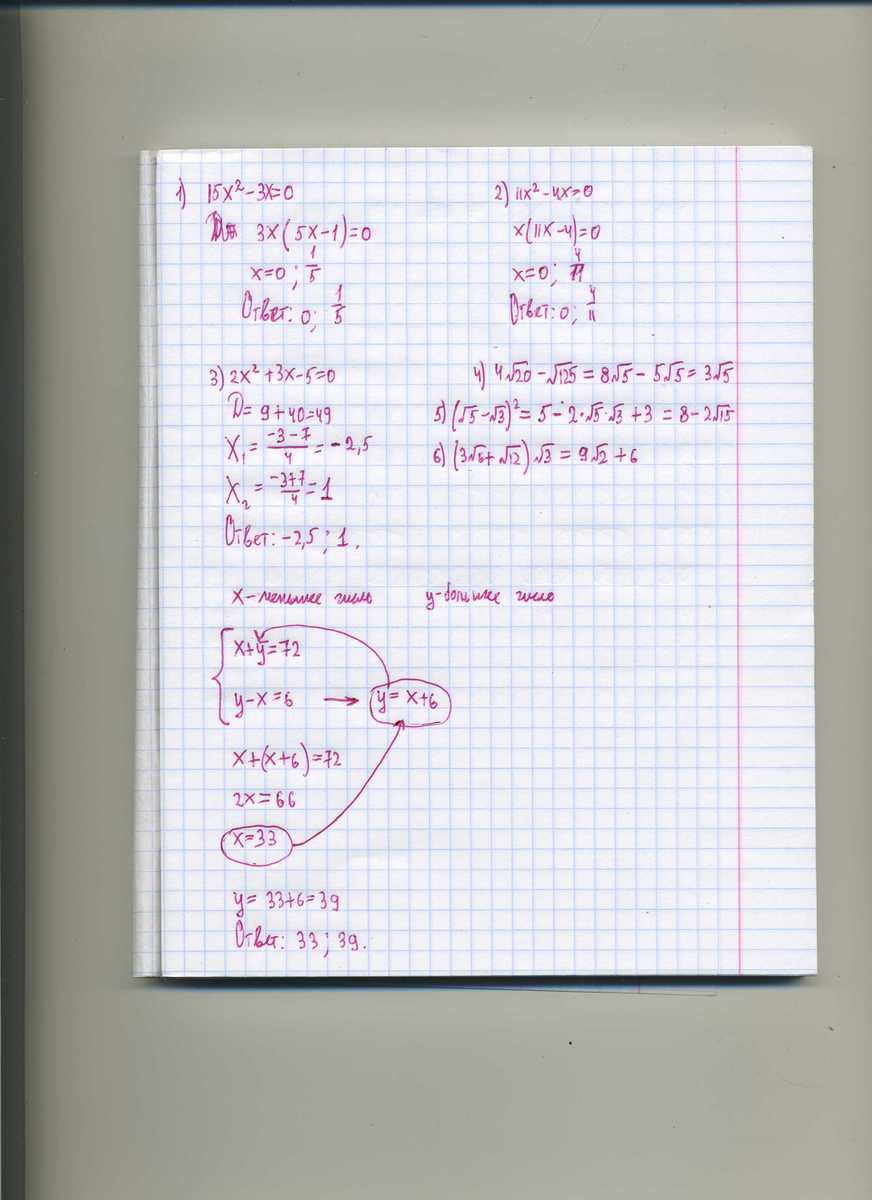 1) 15x² - 3x = 0
3x(5x - 1) = 0
x = 0 ; 1/5
Ответ: 0; 1/5
2) 11x² - 4x = 0
x(11x - 4) = 0
x = 0 ; 4/11
Ответ: 0; 4/11
3) 2x² + 3x - 5 = 0
D = 9 + 40 = 49
X₁ = (-3 - 7)/4 = -2,5
X₂ = (-3 + 7)/4 = 1
Ответ: -2,5 ; 1.
4) 4√20 - √125 = 8√5 - 5√5 = 3√5
5) (√5 - √3)² = 5 - 2·√5·√3 + 3 = 8 - 2√15
6) (3√6 + √12)√3 = 9√2 + 6
x - меньшее число y - большее число
x + y = 72
y - x = 6 → y = x + 6
x + (x + 6) = 72
2x = 66
x = 33
y = 33 + 6 = 39
Ответ: 33 ; 39.